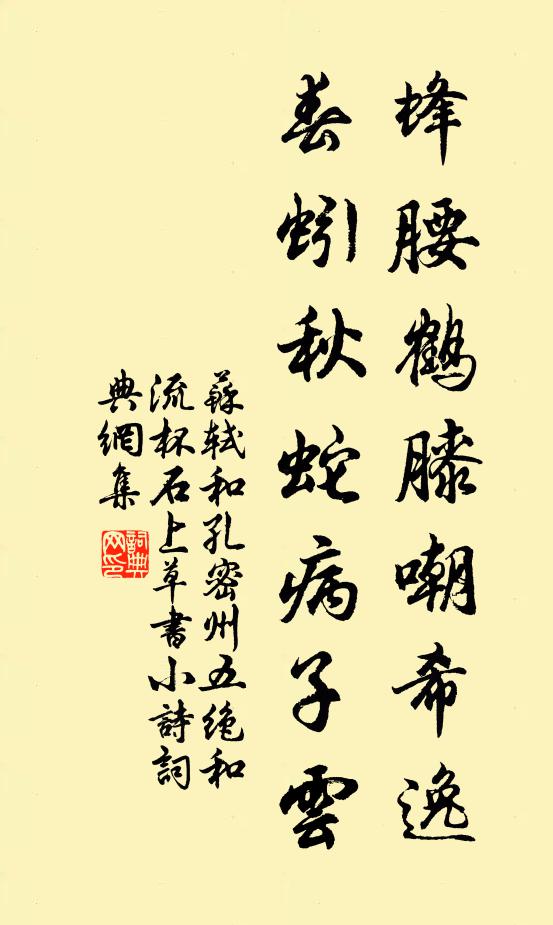 蜂腰鶴膝嘲希逸
春蚓秋蛇病子雲
蘇軾和孔密州五絕和
流杯石上草書小詩詞
典網集
詞典
网印